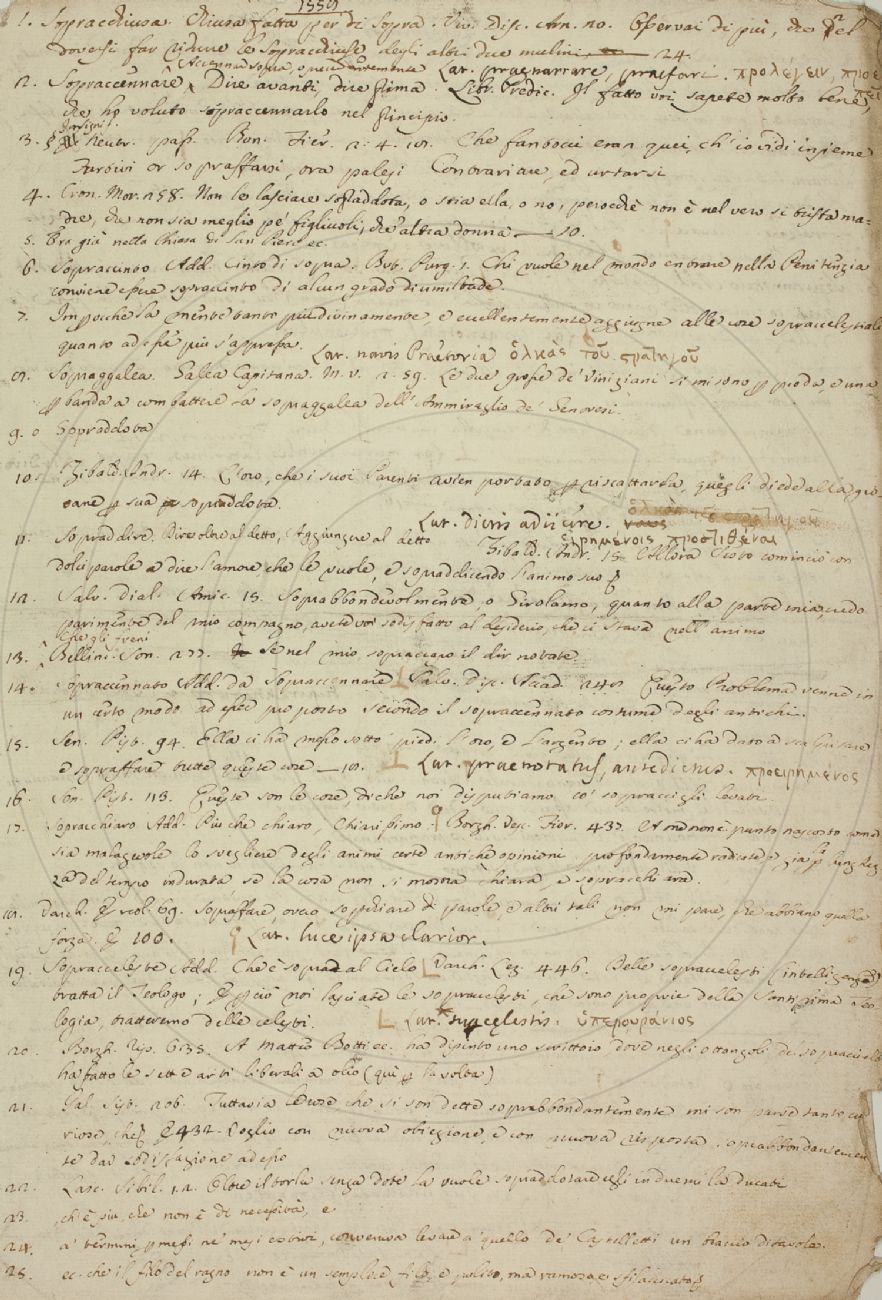 1559
1. Sopracchiusa. Chiusa fatta per di sopra. Viv. Disc. Arn. 110. Osservai di più, che
doversi far ridurre le sopracchiuse degli altri due mulini 24.
Accennar sopra, o precedentemente Lat. praenarrare, praefari. προλέγειν, προε
2. Sopraccennare Dire avanti, dire prima. Segr. Predic. Il fatto voi sapete molto bene,
che ho voluto sopraccennarlo nel principio.
3. pass. Buon. Fier. 2. 4. 18. Che fantocci eran quei, ch'io vidi insieme
Furbivi or sopraffarsi, ora palesi Contrariare, ed urtarsi
4. Cron. Mor. 258. Non le lasciare sopraddota, o stia ella, o no, perocchè non è nel vero sì trista ma-
dre, che non sia meglio pe' figliuoli, ch'altra donna — 10.
5. Era già nella Chiesa di San Piero ec.
6. Sopraccinto Add. Cinto di sopra. But. Purg. 1. Chi vuole nel mondo entrare nella Penitenzia
conviene esser sopraccinto di alcun grado di umiltade.
7. Imperocchè la mente tanto più divinamente, e eccellentemente aggiugne alle cose sopraccelestiali
quanto ad esse più s'appressa.
Lat. navis Praetoria ὁλκὰς τοῦ στρατηγοῦ
8. Sopraggalea. Galea Capitana. M. V. 2. 59. Le due grosse de' Viniziani si misono per proda, e una
per banda a combattere la sopraggalea dell'Ammiraglio de' Genovesi.
9. o Sopraddota
10. Tibald. Andr. 14. L'oro, che i suoi Parenti avien portato per riscattarla, quegli diede alla gio-
vane per sua sopraddota.
Lat. dictis adiicere.
11. Sopraddire. Dire oltre al detto, Aggiungere al detto εἰρημένοις προστιθέναι Tibald. Andr. 15. Allora Ciobo cominciò con
dolci parole a dire l'amore che le vuole, e sopraddicendo l'animo suo
12. Salv. dial. Amic. 15. Soprabbondevolmente, o Girolamo, quanto alla parte mia, credo
parimente del mio compagno, avete voi sodisfatto al desiderio, che ci stava nell'animo
Che gli freni
13. Bellini. Son. 277. Se nel mio sopraccapo il dir notate
14. Sopraccennato Add. da Sopraccennare Salv. disc. Accad. 240. Questo Problema venne in
un certo modo ad esser proposto secondo il sopraccennato costume degli antichi.
15. Sen. Pist. 94. Ella ci ha messo sotto i piedi l'oro, e l'argento; ella ci ha dato a scalpitare
e sopraffare tutte queste cose — 18. Lat. praenotatus, antedictus. προειρημένος
16. Sen. Pist. 113. Queste son le cose, di che noi disputiamo co' sopraccigli levati.
17. Sopracchiaro Add. Più che chiaro, Chiarissimo. Borgh. Vesc. Fior. 437. A me non è punto nascosto come
sia malagevole lo svegliere degli animi certe antiche opinioni profondamente radicate, e già per lunghez
za del tempo indurate, se la cosa non si mostra chiara, e sopracchiara.
18. Varch. Ercol. 69. Sopraffare, ovvero soperchiare di parole, e altri tali non mi pare, che abbiano quella
forza. E 100. Lat. luce ipsa clarior.
19. Sopracceleste Add. Che è sopra al Cielo Varch. Lez. 446. Delle sopraccelesti (intelligenze)
tratta il Teologo; E perciò noi lasciate le sopraccelesti, che sono proprie della Santissima Teo-
logia, tratteremo delle celesti. Lat. supracaelestis. ὑπερουράνιος
20. Borgh. Rip. 635. A Matteo Botti ec. ha dipinto uno scrittoio dove negli ottangoli del sopraccielo
ha fatto le sette arti liberali a olio (qui per la volta)
21. Gal. Sist. 206. Tuttavia le cose che si son dette soprabbondantemente mi son parse tanto cu-
riose, che E 432. Voglio con nuova obiezione, e con nuova risposta soprabbondantemen
te dar sodisfazione ad esso
22. Lasc. Sibil. 1. 2. Oltre il torla senza dote la vuole sopraddotare egli in duemila ducati
23. ch'è più, che non è di necessità, e
24. a' termini, promessi ne' mesi estivi, conveniva levare a quello de' Castelletti un braccio di tavola.
25. ec. che il filo del ragno non è un semplice filo, e pulito, ma ramoso, e sfilaccicato